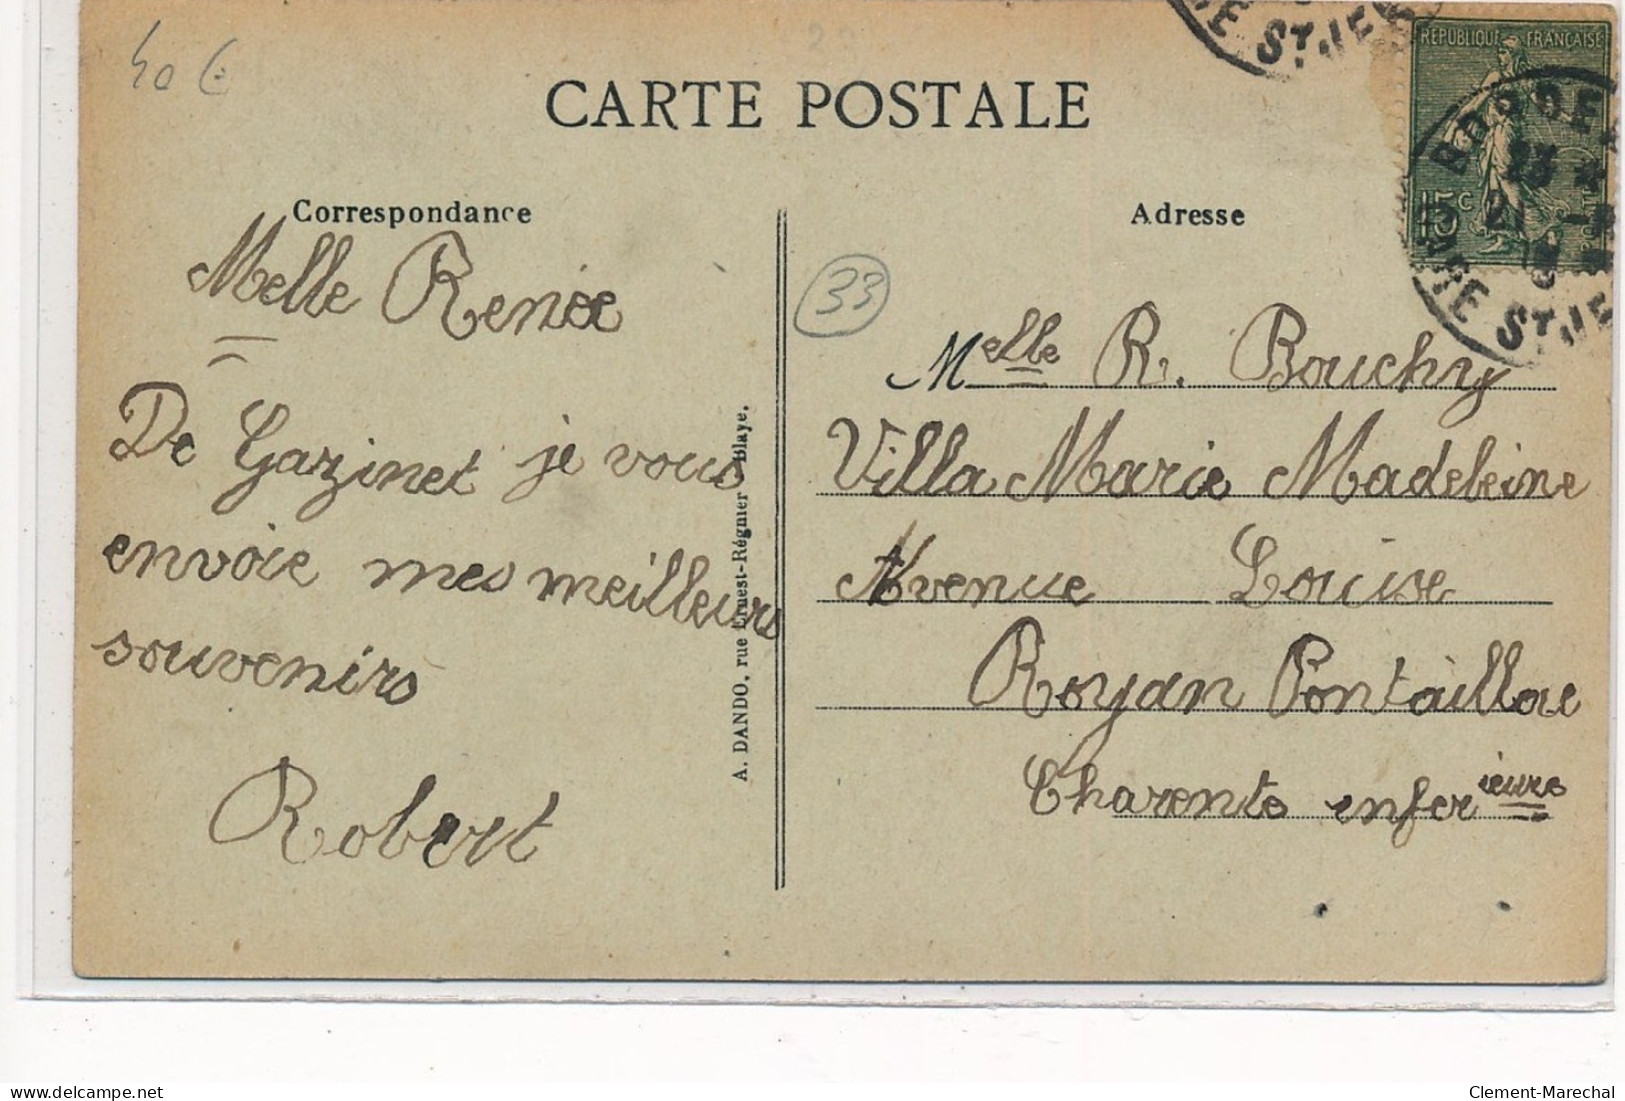 40 €
CARTE POSTALE
Correspondance
Melle Renée
De Gazinet je vous
envoie mes meilleurs
souvenirs
Robert
A. DANDO, rue Ernest-Régnier - Blaye.
33
Adresse
Melle R. Bouchy
Villa Marie Madeleine
Avenue Louise
Royan Pontaillac
Charente enferieure
REPUBLIQUE FRANÇAISE
15 c
POSTES
BORDE
GARE ST JE
delcampe.net
Clement-Marechal